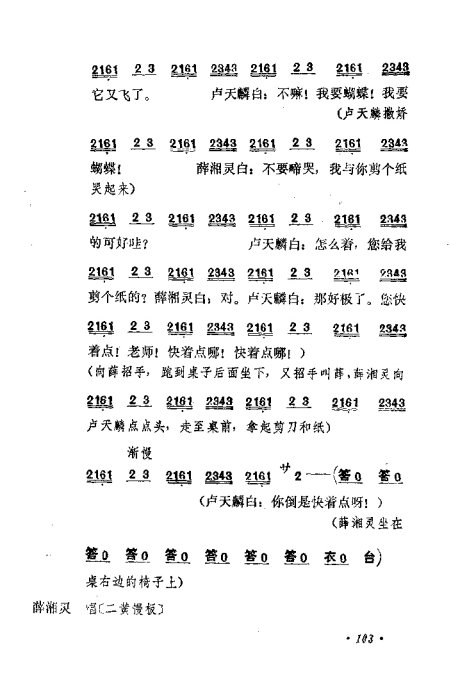 2161 2 3 2161 2343 2161 2 3 2161 2343
它又飞了。 卢天麟白：不嘛！我要蝴蝶！我要
(卢天麟撒娇
2161 2 3 2161 2343 2161 2 3 2161 2343
蝴蝶！ 薛湘灵白：不要啼哭，我与你剪个纸
哭起来)
2161 2 3 2161 2343 2161 2 3 2161 2343
的可好哇？ 卢天麟白：怎么着，您给我
2161 2 3 2161 2343 2161 2 3 2161 2343
剪个纸的？薛湘灵白：对。卢天麟白：那好极了。您快
2161 2 3 2161 2343 2161 2 3 2161 2343
着点！老师！快着点哪！快着点哪！)
(向薛招手，跑到桌子后面坐下，又招手叫薛，薛湘灵向
2161 2 3 2161 2343 2161 2 3 2161 2343
卢天麟点点头，走至桌前，拿起剪刀和纸)
渐慢
2161 2 3 2161 2343 2161 サ2——(答0 答0
(卢天麟白：你倒是快着点呀！)
(薛湘灵坐在
答0 答0 答0 答0 答0 答0 衣0 台)
桌右边的椅子上)
薛湘灵 唱〔二黄慢板〕
·103·